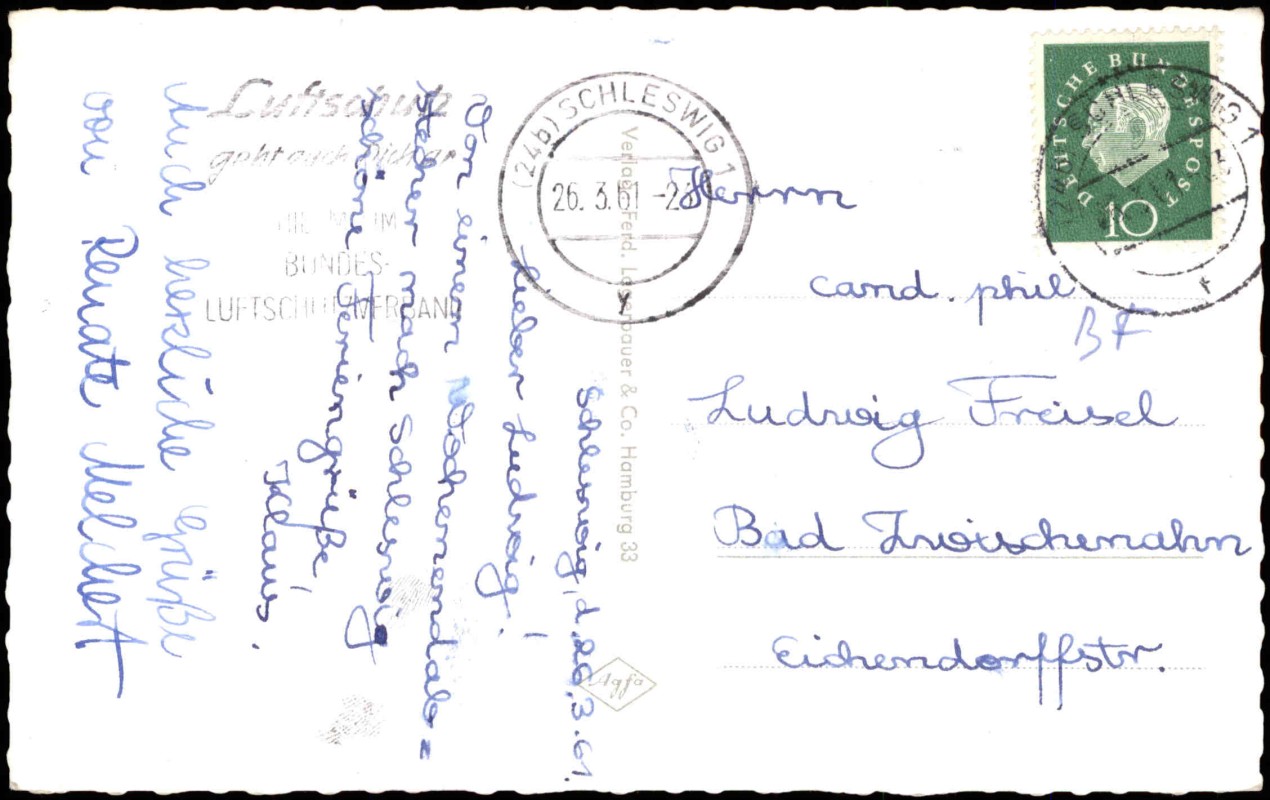 Luftschutz
geht auch Dich an
BUNDES-
LUFTSCHUTZVERBAND
(24b) SCHLESWIG 1
26.3.61
DEUTSCHE BUNDESPOST
10
SCHLESWIG 1
Schleswig, d. 26.3.61.
Lieber Ludwig!
Von einem Wochenendab=
stecher nach Schleswig
schöne Feriengrüße
Klaus.
Auch herzliche Grüße
von Renate Melchert
Verlag Ferd. Lagerbauer & Co. Hamburg 33
Agfa
Herrn
cand. phil
BF
Ludwig Freisel
Bad Zwischenahn
Eichendorffstr.